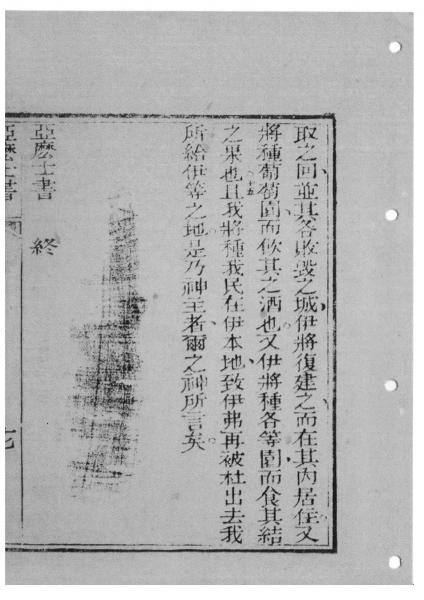 取之回並其各敗毀之城伊將復建之而在其內居住又
將種萄萄園而飲其之酒也又伊將種各等園而食其結
十五
之果也且我將種我民在伊本地致伊弗再被杜出去我
所給伊等之地是乃神主者爾之神所言矣
亞麼士書 終
亞麼士書